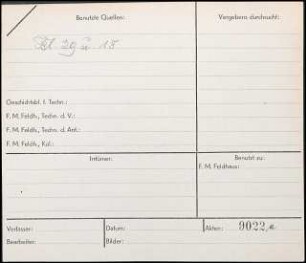 Benutzte Quellen:
Vergebens durchsucht:
Bl. 29 u 18
Geschichtsbl. f. Techn.:
F. M. Feldh., Techn. d. V.:
F. M. Feldh., Techn. d. Ant.:
F. M. Feldh., Kul.:
Irrtümer:
Benutzt zu:
F. M. Feldhaus:
Verfasser:
Datum:
Akten: 9022
Bearbeiter:
Bilder: